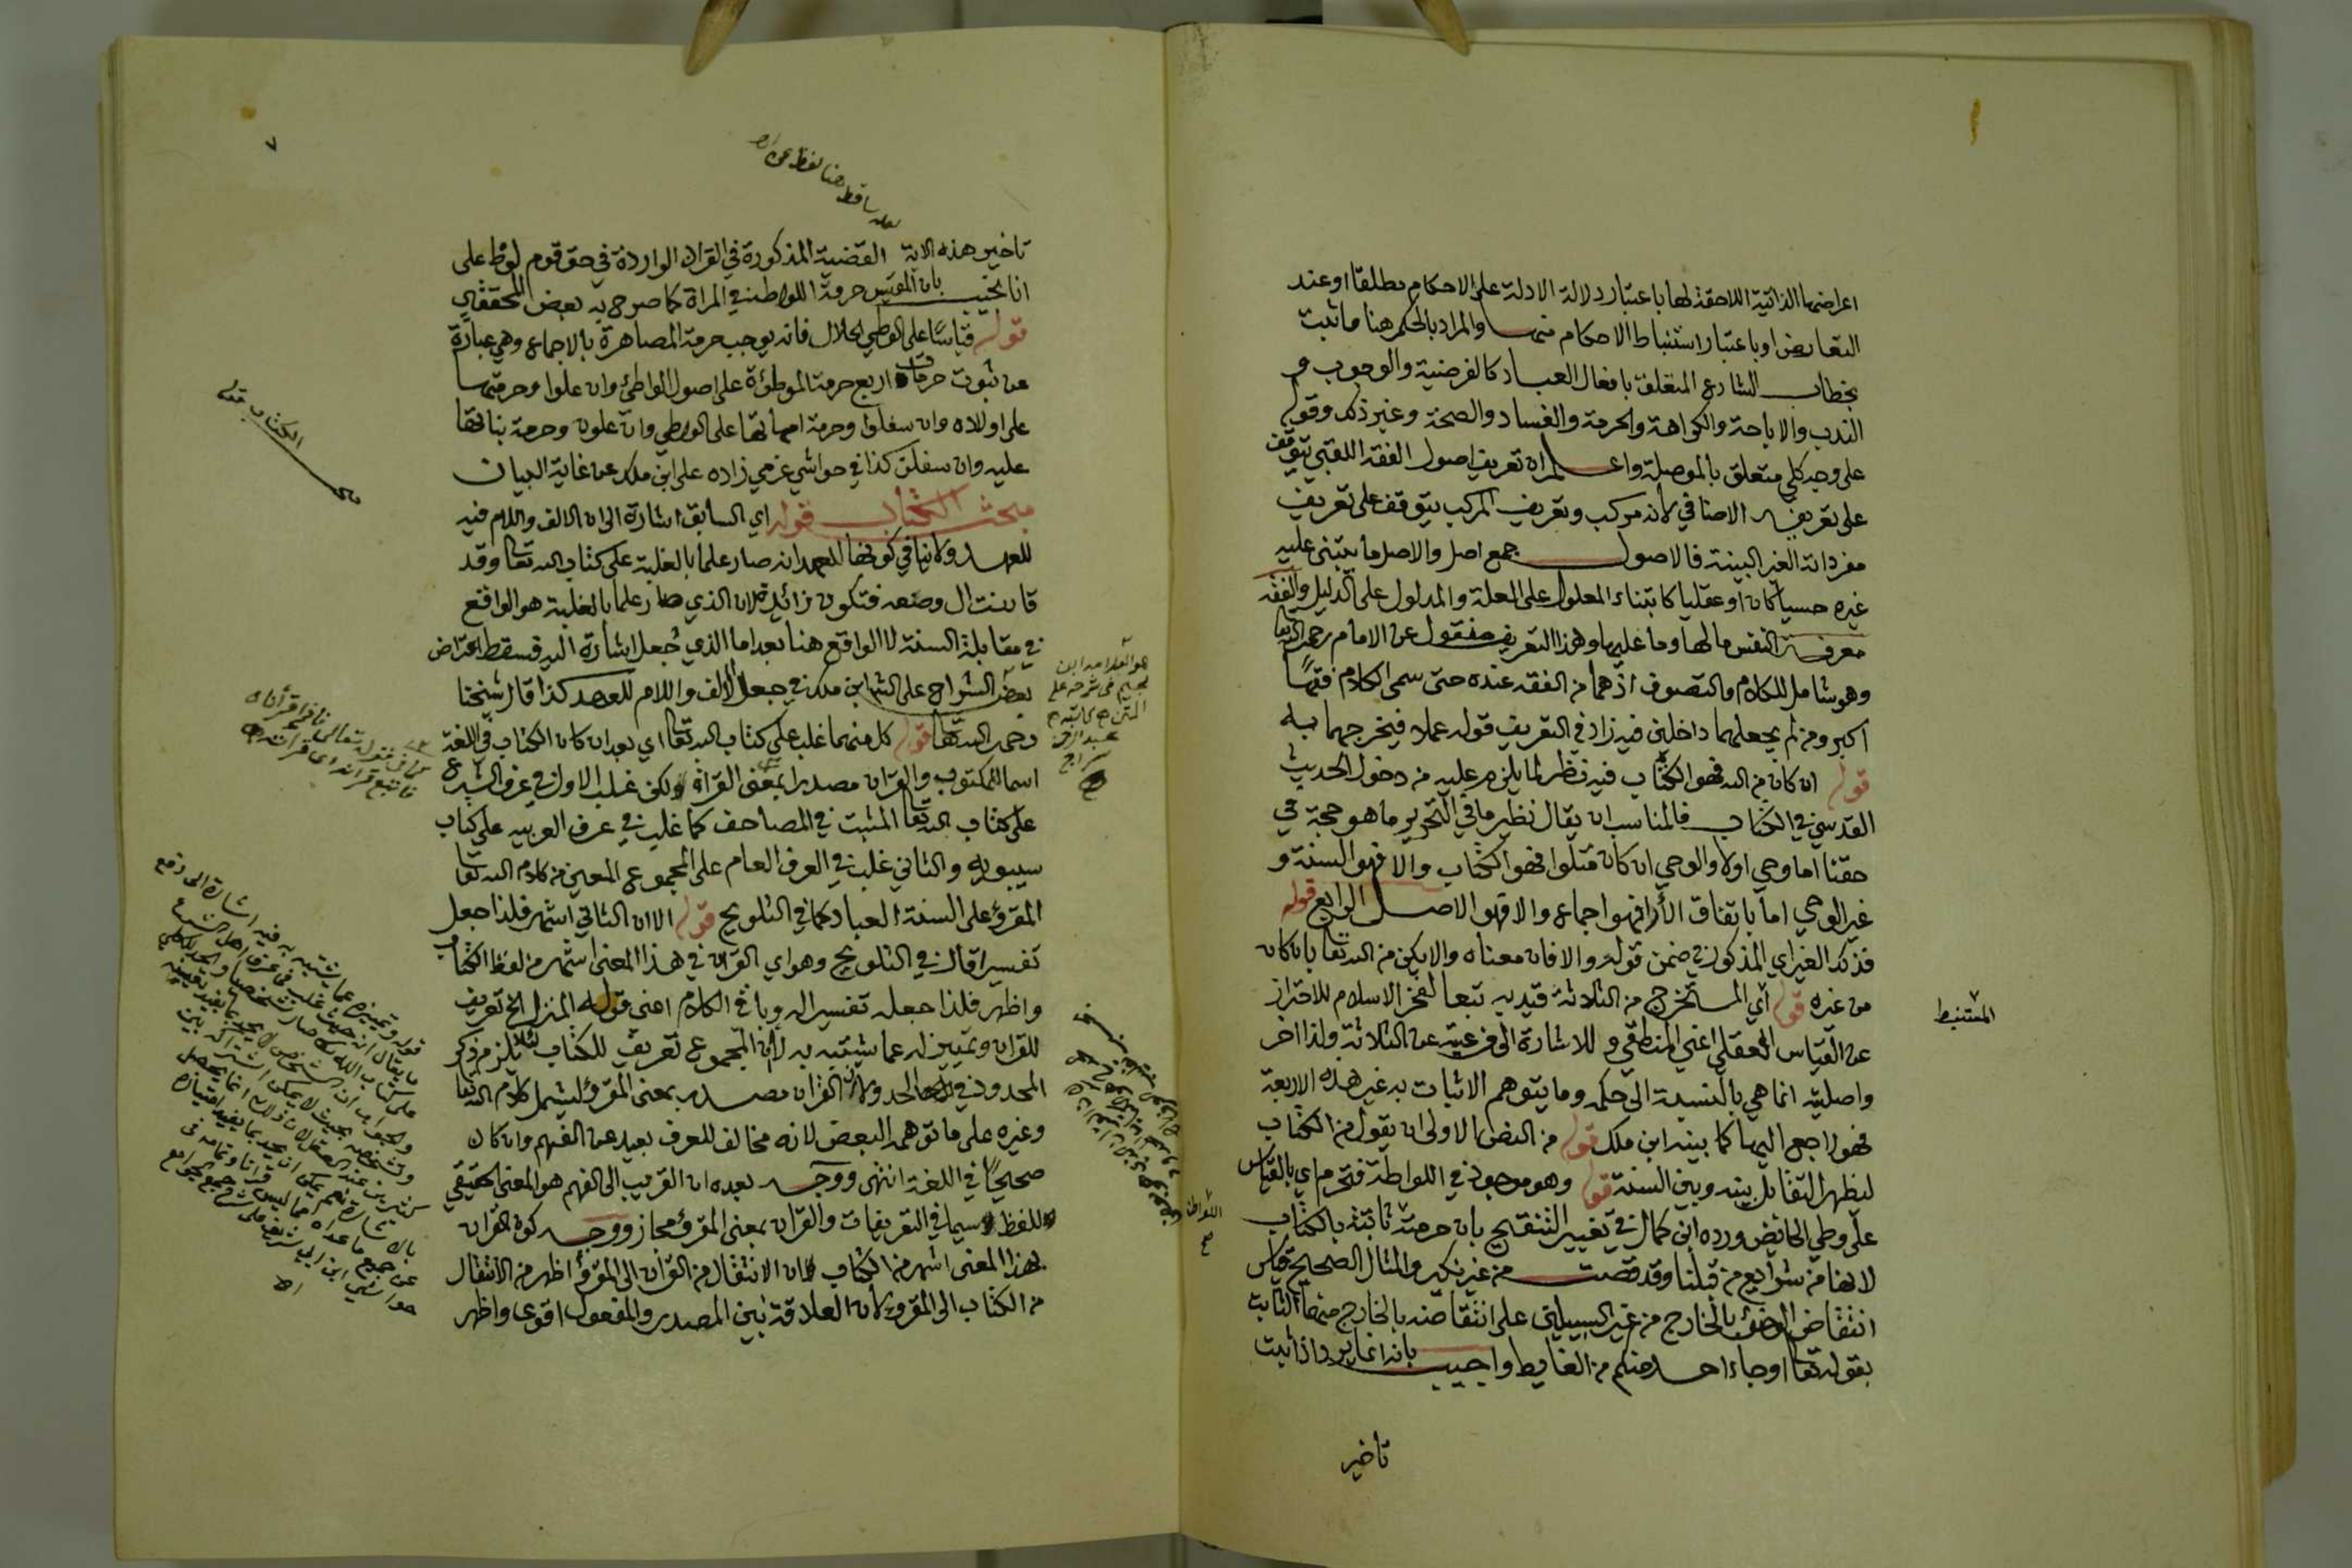 اعراضها الذاتية اللاحقة لها باعتبار دلالة الادلة على الاحكام مطلقا او عند
التعارض او باعتبار استنباط الاحكام منها والمراد بالحكم هنا ما ثبت
بخطاب الشارع المتعلق بافعال العباد كالفرضية والوجوب و
الندب والاباحة والكراهة والحرمة والفساد والصحة وغير ذلك وقوله
على وجه كلي متعلق بالموصلة واعلم ان تعريف اصول الفقه اللقبي يتوقف
على تعريفه الاضافي لانه مركب وتعريف المركب يتوقف على تعريف
مفرداته الغير البينة فالاصول جمع اصل والاصل ما يبتنى عليه
غيره حسيا كان او عقليا كابتناء المعلول على العلة والمدلول على الدليل والفقه
معرفة النفس ما لها وما عليها وهذا التعريف منقول عن الامام رحمه الله تعا
وهو شامل للكلام والتصوف اذ هما من الفقه عنده حتى سمى الكلام فقها
اكبر ومن لم يجعلهما داخلين فيه زاد في التعريف قوله عملا فيخرجهما به
قوله ان كان من الله فهو الكتاب فيه نظر لما يلزم عليه من دخول الحديث
القدسي في الكتاب فالمناسب ان يقال نظير ما في التحرير ما هو حجة في
حقنا اما وحي اولا والوحي ان كان متلوا فهو الكتاب والا فهو السنة و
غير الوحي اما باتفاق الأراء فهو اجماع والا فهو الاصل الرابع قوله
فذكر الغير اي المذكور في ضمن قوله والا فان معناه والا يكن من الله تعا بان كان
من غيره قوله اي المستخرج من الثلاثة قيد به تبعا لفخر الاسلام للاحتراز
عن القياس العقلي اعني المنطقي و للاشارة الى فرعيته عن الثلاثة ولذا اخر
واصليته انما هي بالنسبة الى حكمه وما يتوهم الاثبات به غير هذه الاربعة
فهو راجع اليها كما بينه ابن ملك قوله من النص الاولى ان يقول من الكتاب
ليظهر التقابل بينه وبين السنة قوله وهو موجود في اللواطة فتحرم اي بالقياس
على وطي الحائض ورده ابن كمال في تغيير التنقيح بان حرمتة ثابتة بالكتاب
لانها من شرايع من قبلنا وقد قصت من غير نكير والمثال الصحيح قياس
انتقاض الوضوء بالخارج من غير السبيلين على انتقاضه بالخارج منهما الثابت
بقوله تعا او جاء احد منكم من الغايط واجيب بانه انما يرد اذا ثبت
تاخير
المستنبط
اللواطة
صح
٧
لعله ساقط هنا لفظ عن اه
تاخير هذه الاية القضية المذكورة في القران الواردة في حق قوم لوط على
انا نجيب بان المقيس حرمة اللواطة في المراة كما صرح به بعض المحققين
قوله قياسا على الوطي الحلال فانه يوجب حرمة المصاهرة بالاجماع وهي عبارة
عن ثبوت حرمات اربع حرمة الموطؤة على اصول الواطئ وان علوا وحرمتها
على اولاده وان سفلوا وحرمة امهاتها على الواطي وان علون وحرمة بناتها
عليه وان سفلن كذا في حواشي عزمي زاده على ابن ملك عن غاية البيان
مبحث الكتاب قوله اي السابق اشارة الى ان الالف واللام فيه
للعهد ولا ينافي كونها للعهد انه صار علما بالغلبة على كتاب الله تعا وقد
قارنت ال وضعه فتكون زائدة لان الذي صار علما بالغلبة هو الواقع
في مقابلة السنة لا الواقع هنا بعد اما الذي جعل اشارة اليه فسقط اعتراض
بعض الشراح على الشا ابن ملك في جعل الالف واللام للعهد كذا قال شيخنا
رحمه الله تعا قوله كل منهما غلب على كتاب الله تعا اي بعد ان كان الكتاب في اللغة
اسما للمكتوب والقران مصدرا بمعنى القراة ولكن غلب الاول في عرف الشرع
على كتاب الله تعا المثبت في المصاحف كما غلب في عرف العربيه على كتاب
سيبويه والثاني غلب في العرف العام على المجموع المعين من كلام الله تعا
المقروء على السنة العباد كما في التلويح قوله الا ان الثاني اشهر فلذا جعل
تفسيرا قال في التلويح وهو اي القران في هذا المعنى اشهر من لفظ الكتاب
واظهر فلذا جعله تفسيرا له وباقي الكلام اعني قوله المنزل الخ تعريف
للقران وتمييز له عما يشتبه به لا ان المجموع تعريف للكتاب لئلا يلزم ذكر
المحدود في الحد ولان القران مصدر بمعنى المقروء ليشمل كلام الله تعا
وغيره على ما توهمه البعض لانه مخالف للعرف بعيد عن الفهم وان كان
صحيحا في اللغة انتهى ووجه بعده ان القريب الى الفهم هو المعنى الحقيقي
للفظ لا سيما في التعريفات والقران بمعنى المقروء مجاز ووجه كون القران
بهذا المعنى اشهر من الكتاب ان الانتقال من القران الى المقروء اظهر من الانتقال
من الكتاب الى المقروء لان العلاقة بين المصدر والمفعول اقوى واظهر
هو العلامه ابن
نجيم في شرحه على
المتن
عبد الرزاق
الكتاب قوله
قوله تعالى فاذا قرأناه
فاتبع قرانه اي قراءته اه
قوله وتمييز له عما يشتبه به فيه اشارة الى دفع
ما يقال انه حيث غلب في عرف اهل الشرع
على كتاب الله تعا صار شخصا